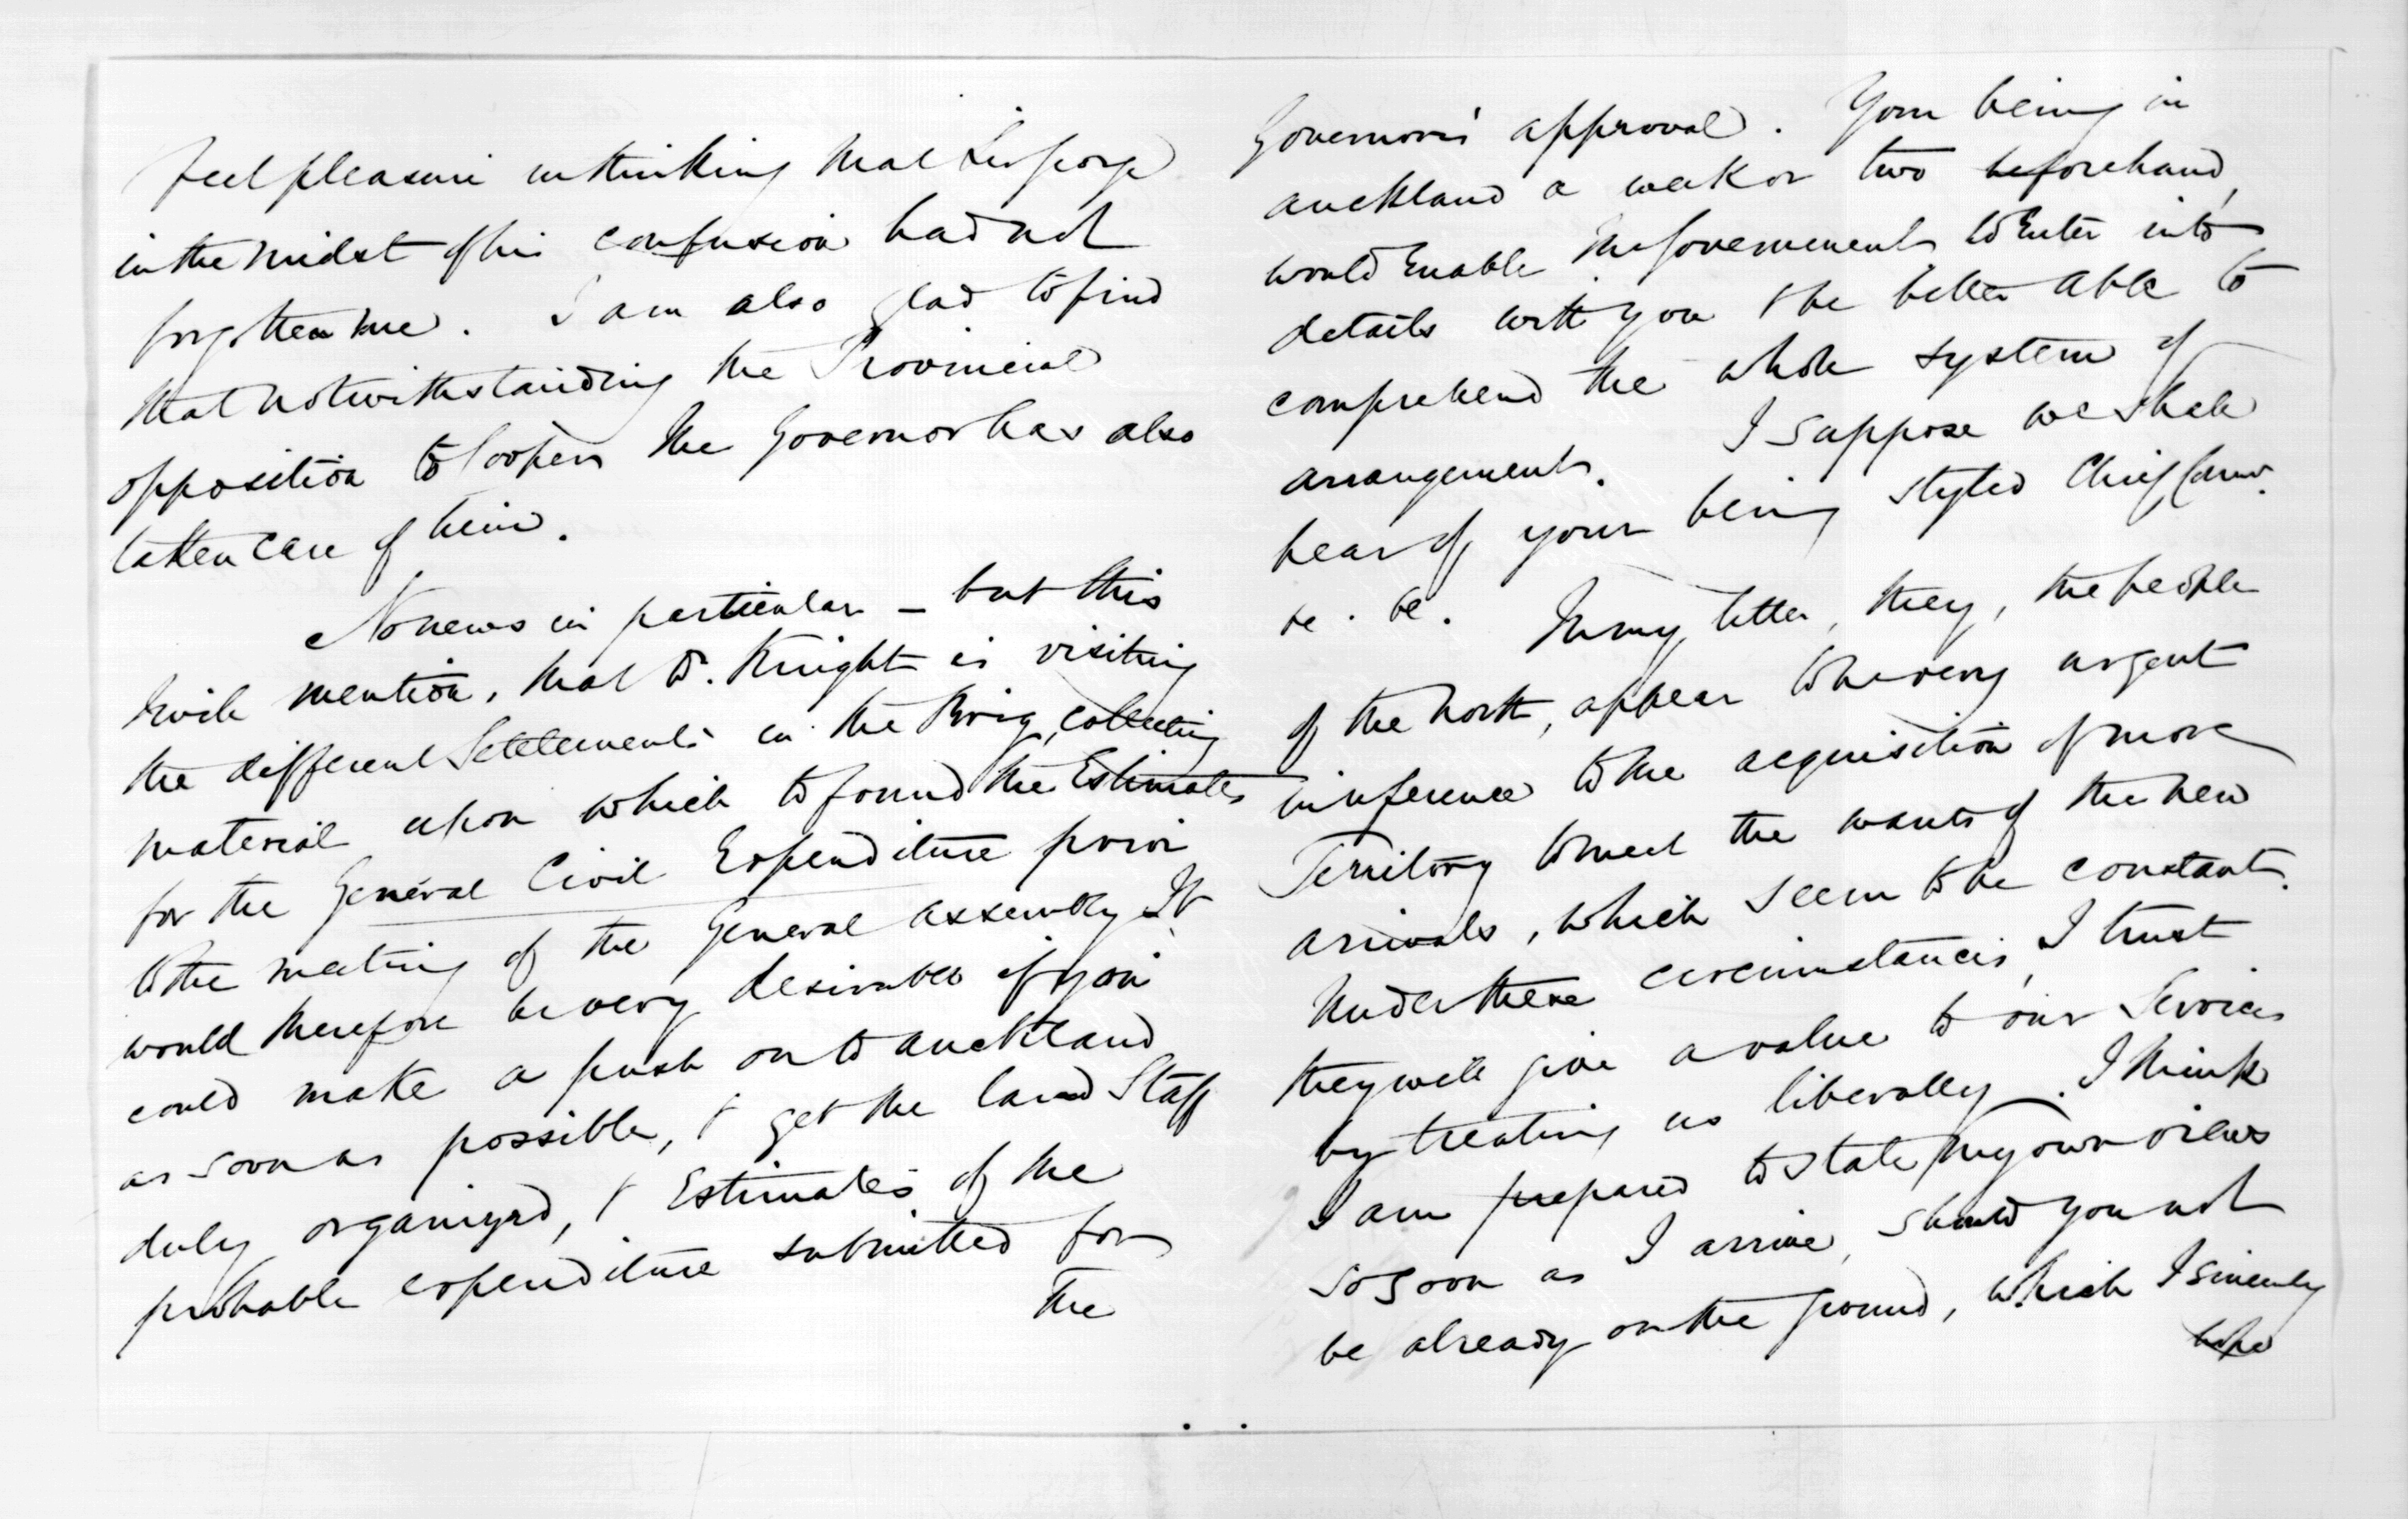 feel pleasure in thinking that Sir George
in the midst of his confusion had not
forgotten me. I am also glad to find
that notwithstanding the Provincial
opposition to Cooper the Governor has also
taken care of him.
No news in particular – but this
I will mention, that Dr. Knight is visiting
the different Settlements in the Brig, collecting
material upon which to found the Estimates
for the General Civil Expenditure prior
to the meeting of the General Assembly. It
would therefore be very desirable if you
could make a push on to Auckland
as soon as possible, & get the Land Staff
duly organized, & Estimates of the
probable expenditure submitted for
the
Governor's approval. Your being in
Auckland a week or two beforehand,
would enable the Government to enter into
details with you & be better able to
comprehend the whole system of
arrangement. I suppose we shall
hear of your being styled Chief Comr.
&c. &c. In my letter, they, the people
of the North, appear to be very urgent
in reference to the acquisition of more
Territory to meet the wants of the new
arrivals, which seem to be constant.
Under these circumstances, I trust
they will give a value to our Services
by treating us liberally. I think
I am prepared to state my own views
so soon as I arrive, should you not
be already on the ground, which I sincerely
hope